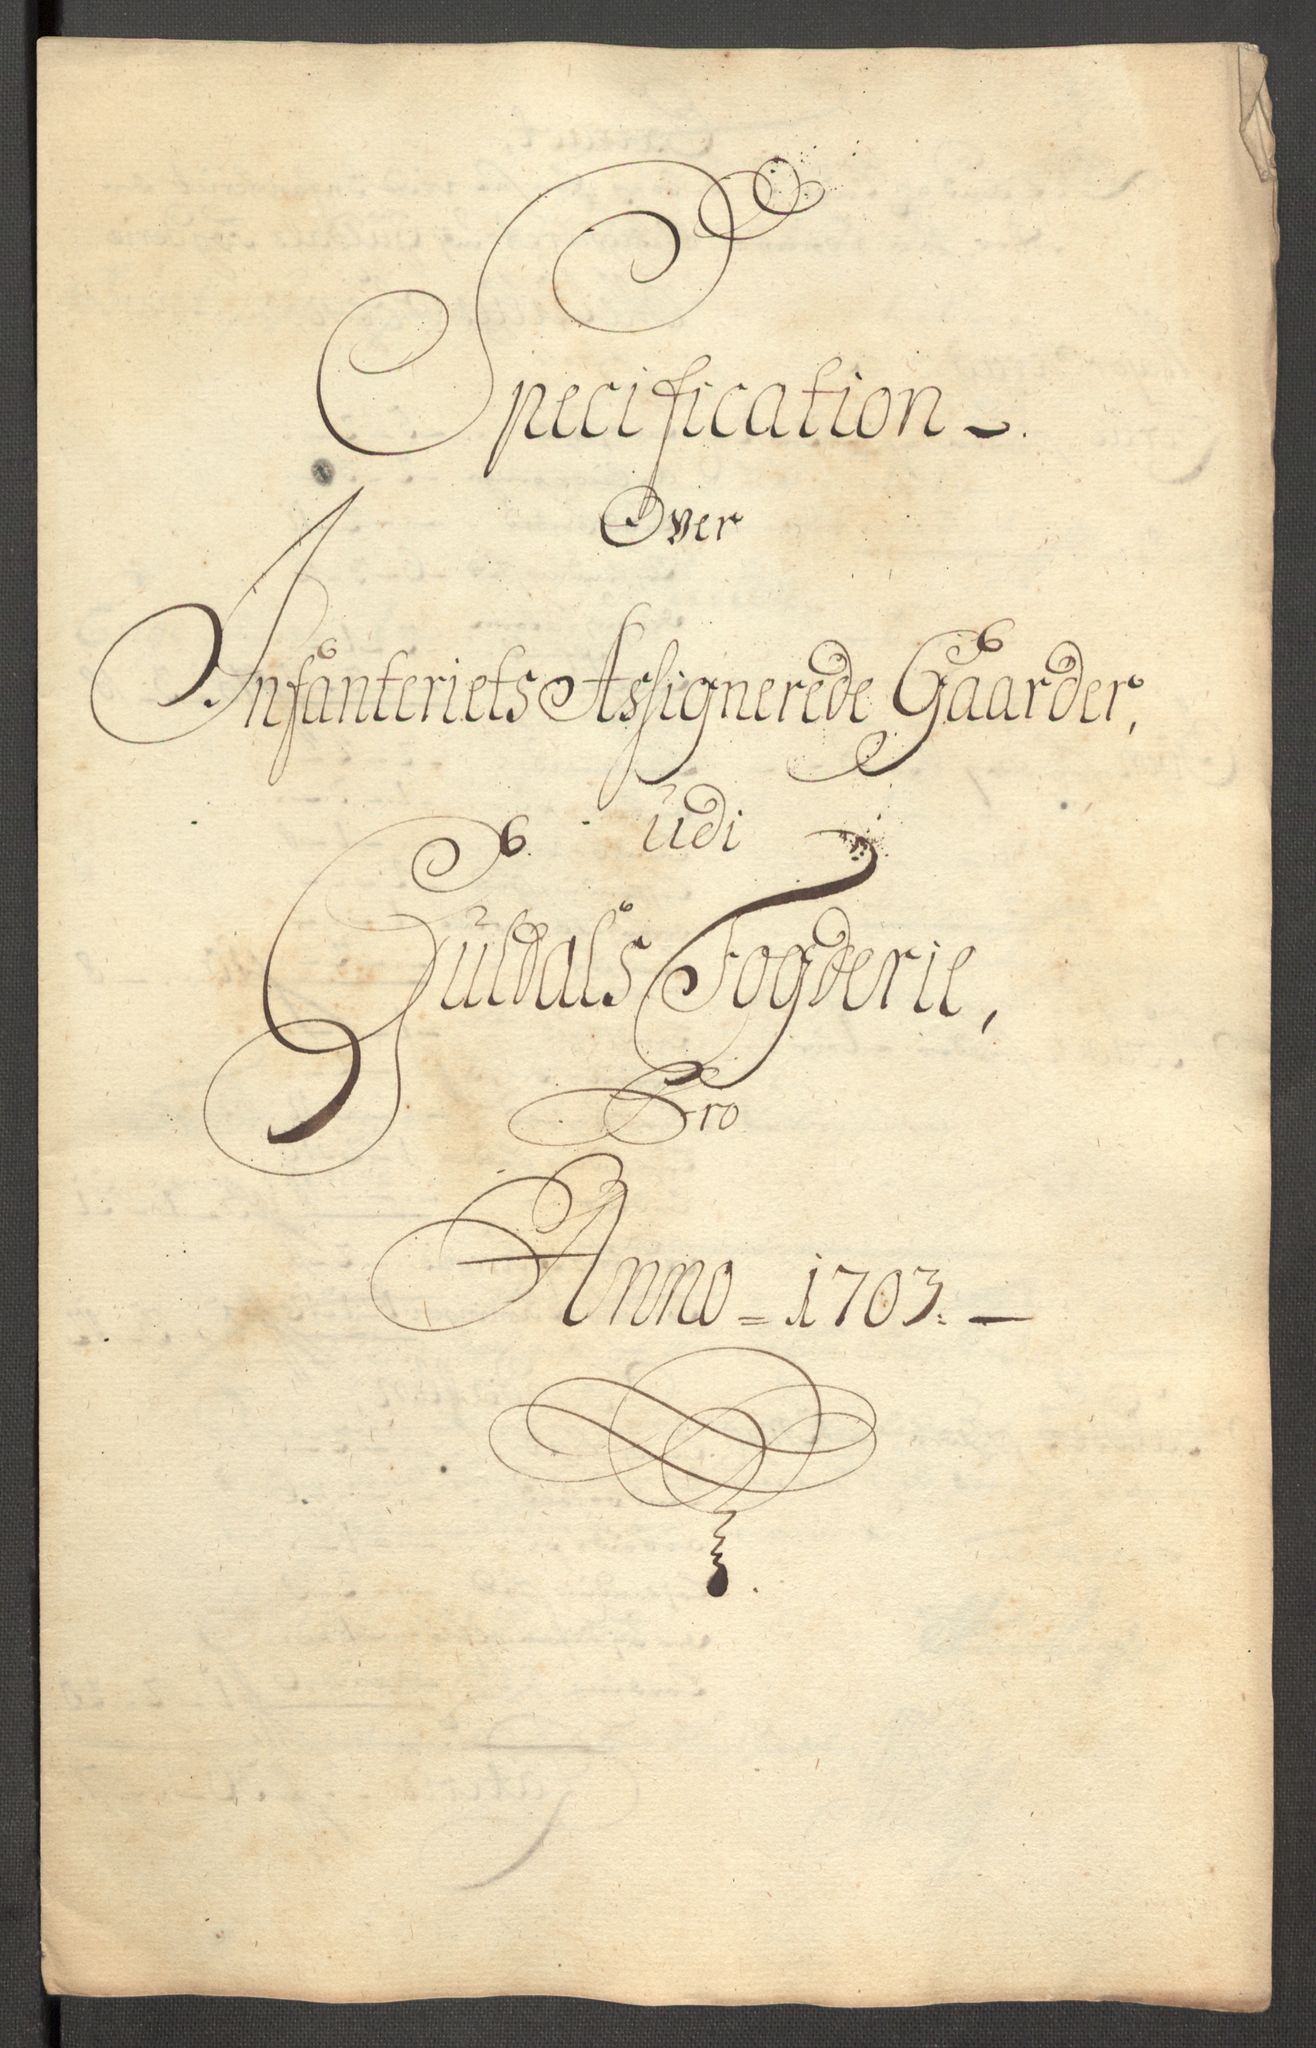 Specification
Over
Infanteriets Assignerede Gaarder,
udi
Guldals Fogderie,
Pro
Anno = 1703. —